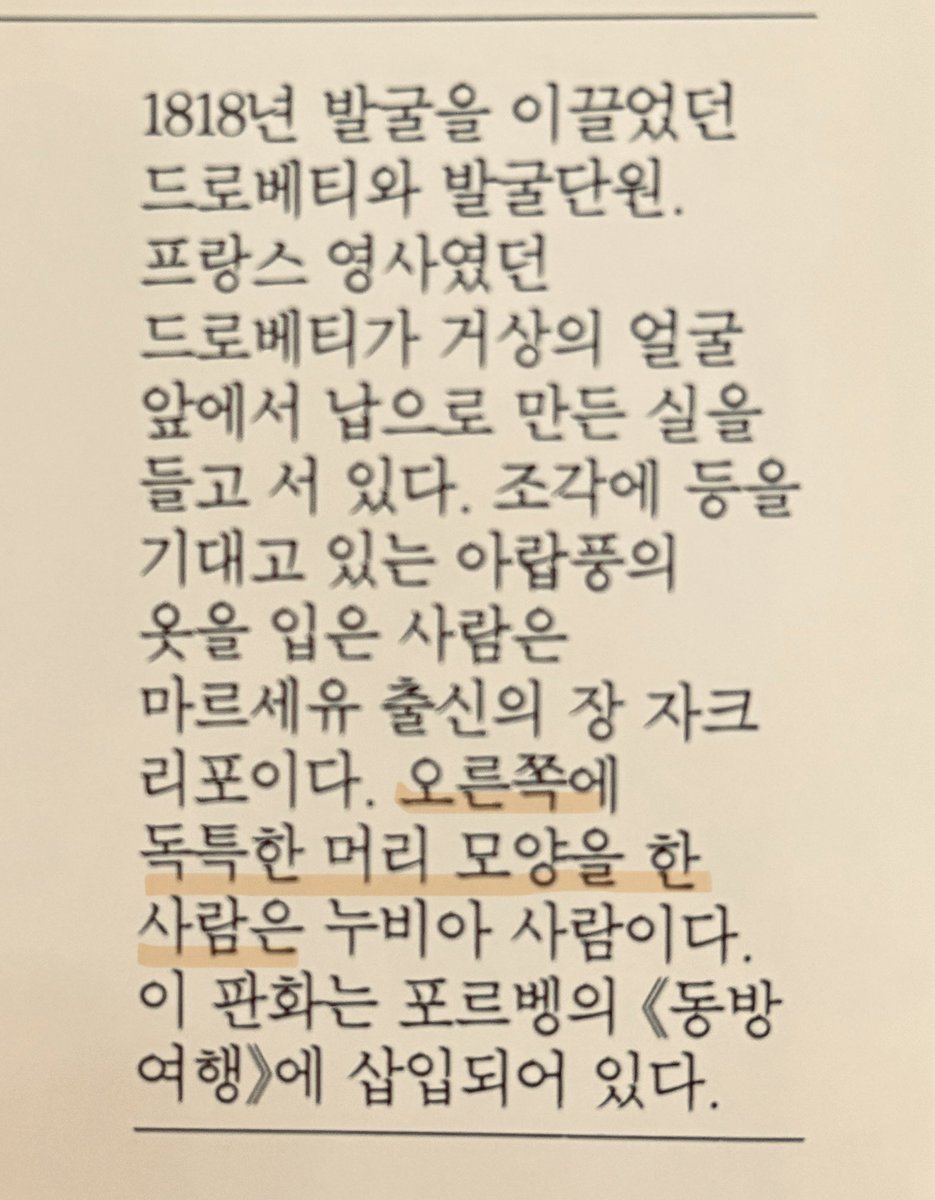 1818년 발굴을 이끌었던
드로베티와 발굴단원.
프랑스 영사였던
드로베티가 거상의 얼굴
앞에서 납으로 만든 실을
들고 서 있다. 조각에 등을
기대고 있는 아랍풍의
옷을 입은 사람은
마르세유 출신의 장 자크
리포이다. 오른쪽에
독특한 머리 모양을 한
사람은 누비아 사람이다.
이 판화는 포르벵의 《동방
여행》에 삽입되어 있다.